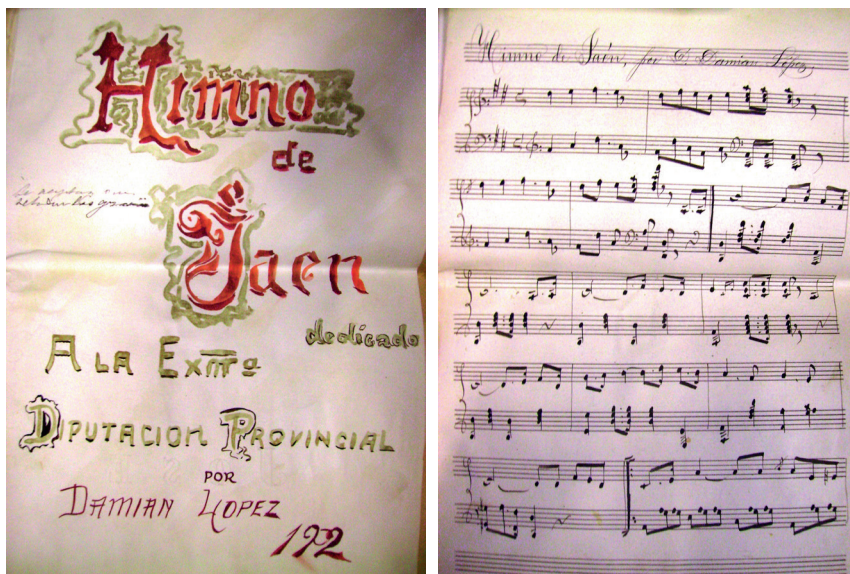 Himno
de
Jaen
dedicado
A LA Exmª
DIPUTACION PROVINCIAL
POR
DAMIAN LOPEZ
192
Himno de Jaén, por D. Damian López